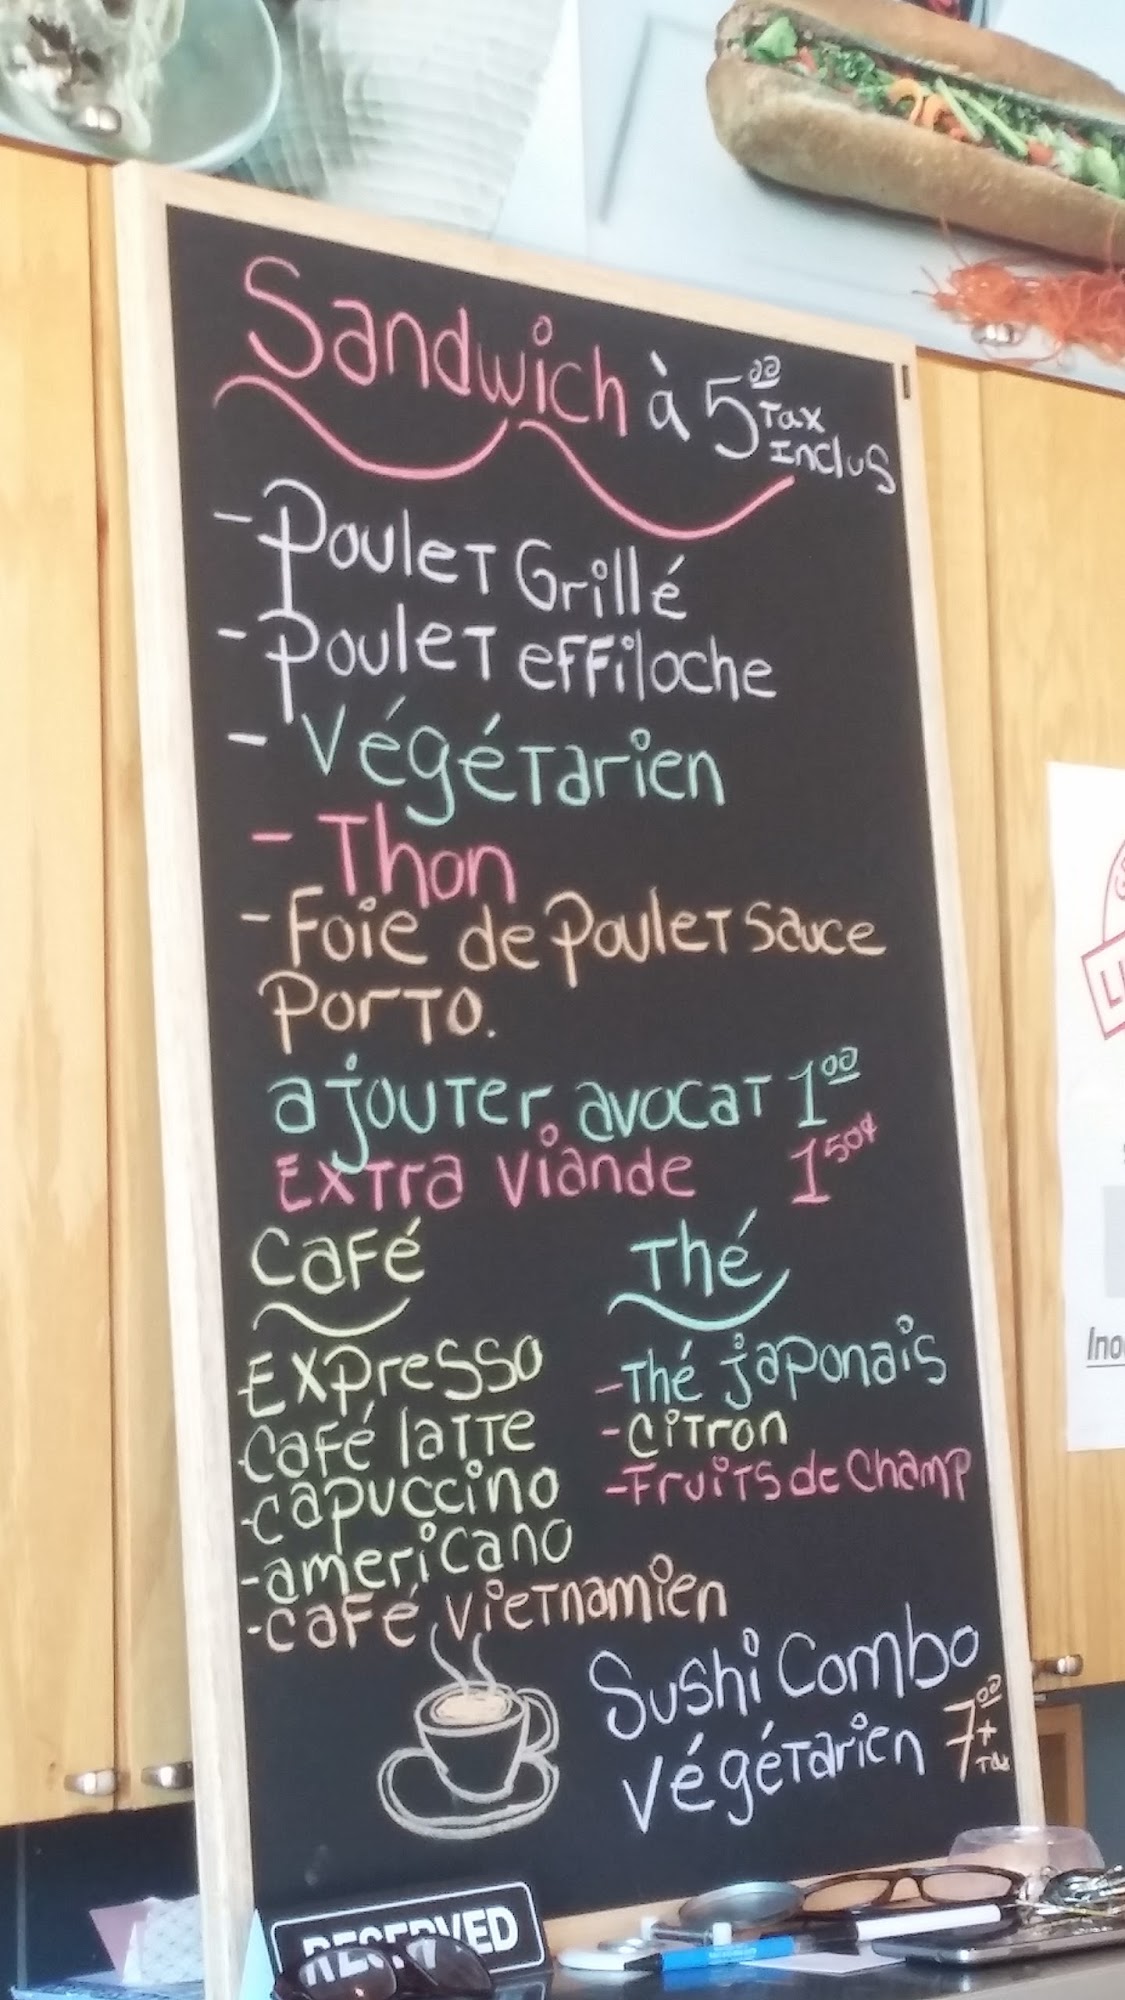 Sandwich à 5.00 Tax Inclus
- Poulet Grillé
- Poulet effiloche
- Végétarien
- Thon
- Foie de Poulet Sauce
Porto.
ajouter avocat 1.00
Extra viande 1.50¢
Café
Thé
- Expresso
- Café latte
- capuccino
- americano
- café vietnamien
- Thé japonais
- Citron
- Fruits de Champ
Sushi Combo
Végétarien 7.00 + Tax
RESERVED